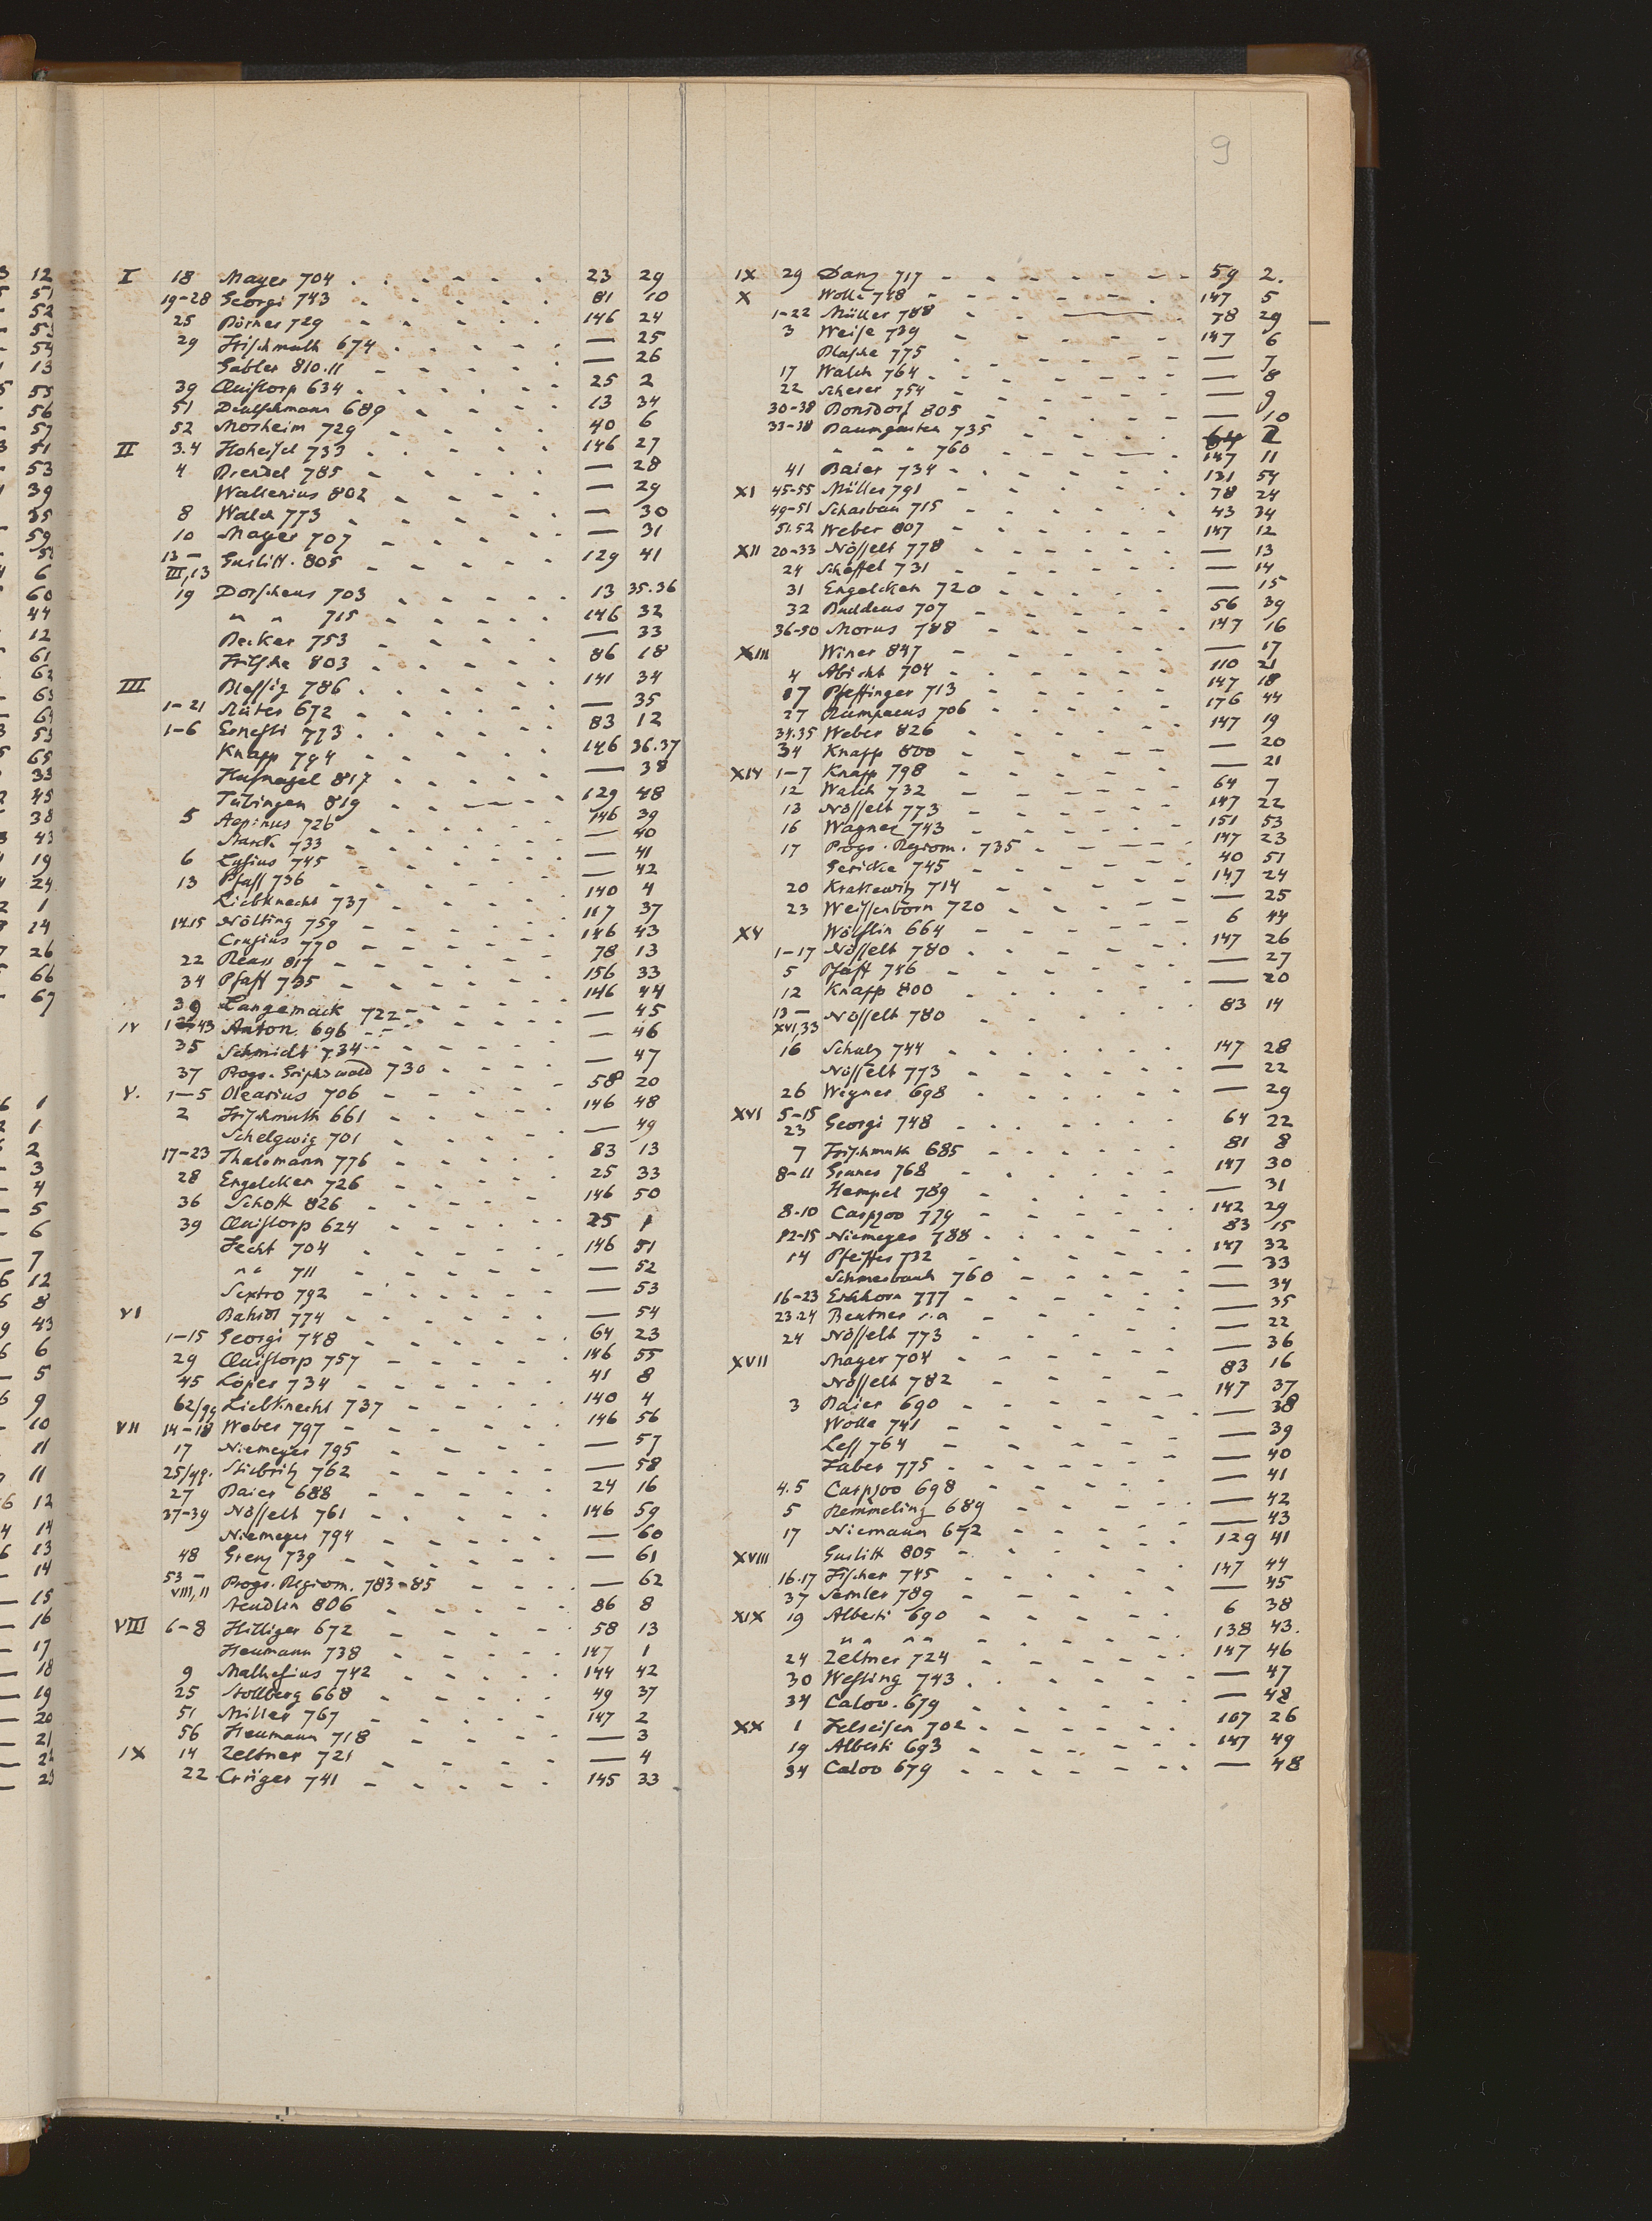 9
I 18 Mayer 704 23 29
19-28 Georgi 743 81 10
25 Börner 729 146 24
29 Frischmuth 674 — 25
Gabler 810.11 — 26
39 Quistorp 634 25 2
51 Deutschmann 689 13 34
52 Mosheim 729 40 6
II 3.4 Hoheisel 733 146 27
4 Drendel 785 — 28
Wallenius 802 — 29
8 Walch 773 — 30
10 Mayer 707 — 31
13 — III,13 Gurlitt. 805 129 41
19 Dorscheus 703 13 35.36
" " 715 146 32
Becker 753 — 33
Fritsche 803 86 18
III Blessig 786 141 34
1-21 672 — 35
1-6 Ernesti 773 83 12
Knapp 794 146 36.37
Hufnagel 817 — 38
Tübingen 819 129 48
5 Aepinus 726 146 39
733 — 40
6 Lysius 745 — 41
13 Pfaff 736 — 42
Liebknecht 737 140 4
14.15 Nölting 759 117 37
Crusius 770 146 43
22 817 78 13
34 Pfaff 735 156 33
39 Langemack 722 146 44
IV 43 Anton. 696 — 45
35 Schmidt 734 — 46
37 Progr. Griphswald 730 — 47
V. 1—5 Olearius 706 58 20
2 Frischmuth 661 146 48
Schelgwig 701 — 49
17-23 Thalemann 776 83 13
28 Engelcken 726 25 33
36 Schott 826 146 50
39 Quistorp 624 25 1
Fecht 704 146 51
" " 711 — 52
Sextro 792 — 53
VI Bahrdt 774 — 54
1-15 Georgi 748 64 23
29 Quistorp 757 146 55
45 Löper 734 41 8
62/99 Liebknecht 737 140 4
VII 14-18 Weber 797 146 56
17 Niemeyer 795 — 57
25/99. Stiebritz 762 — 58
27 Baier 688 24 16
37-39 Nösselt 761 146 59
Niemeyer 794 — 60
48 Grenz 739 — 61
53 — VIII,11 Progr. Regiom. 783-85 — 62
Steudlin 806 86 8
VIII 6-8 Hilliger 672 58 13
Heumann 738 147 1
9 Mathesius 742 144 42
25 Stollberg 668 49 37
51 Miller 767 147 2
56 Heumann 718 — 3
IX 14 Zeltner 721 — 4
22 Crüger 741 145 33
IX 29 Danz 717 59 2.
X Wolle 748 147 5
1-22 Müller 788 78 29
3 Weise 739 147 6
Blasche 775 — 7
17 Walch 764 — 8
22 Scherer 754 — 9
30-38 Bonsdorf 805 — 10
33-38 Baumgarten 735 64 2
" " " 760 147 11
41 Baier 734 131 54
XI 45-55 Müller 791 78 24
49-51 Scharbau 715 43 34
51.52 Weber 807 147 12
XII 20-33 Nösselt 778 — 13
24 Schöffel 731 — 14
31 Engelcken 720 — 15
32 Buddeus 707 56 39
36-50 Morus 788 147 16
XIII Winer 847 — 17
4 Abicht 704 110 21
17 Pfeffinger 713 147 18
27 Rumpaeus 706 176 44
34.35 Weber 826 147 19
34 Knapp 800 — 20
XIV 1-7 Knapp 798 — 21
12 Walch 732 64 7
13 Nösselt 773 147 22
16 Wagner 743 151 53
17 Progr. Regiom. 735 147 23
Gericke 745 40 51
20 Krakewitz 714 147 24
23 Weissenborn 720 — 25
XV Wölflin 664 6 44
1-17 Nösselt 780 147 26
5 Pfaff 746 — 27
12 Knapp 800 — 20
13 — XVI,33 Nösselt 780 83 14
16 Schulz 744 147 28
Nösselt 773 — 22
26 Wegner 698 — 29
XVI 5-15 23 Georgi 748 64 22
7 Frischmuth 685 81 8
8-11 Gruner 768 147 30
Hempel 789 — 31
8-10 Carpzoo 779 142 29
12-15 Niemeyer 788 83 15
14 Pfeiffer 732 147 32
Schmerbauch 760 — 33
16-23 Eichhorn 777 — 34
23.24 Beutner s.a — 35
24 Nösselt 773 — 22
XVII Mayer 704 — 36
Nösselt 782 83 16
3 Baier 690 147 37
Wolle 741 — 38
Less 764 — 39
Faber 775 — 40
4.5 Carpzoo 698 — 41
5 Remmeling 689 — 42
17 Niemann 692 — 43
XVIII Gurlitt 805 129 41
16.17 Fischer 745 147 44
37 Semler 789 — 45
XIX 19 Alberti 690 6 38
" " " " 138 43.
24 Zeltner 724 147 46
30 Westing 743 — 47
34 Calov. 679 — 48
XX 1 Felseisen 702 107 26
19 Alberti 693 147 49
34 Caloo 679 — 48